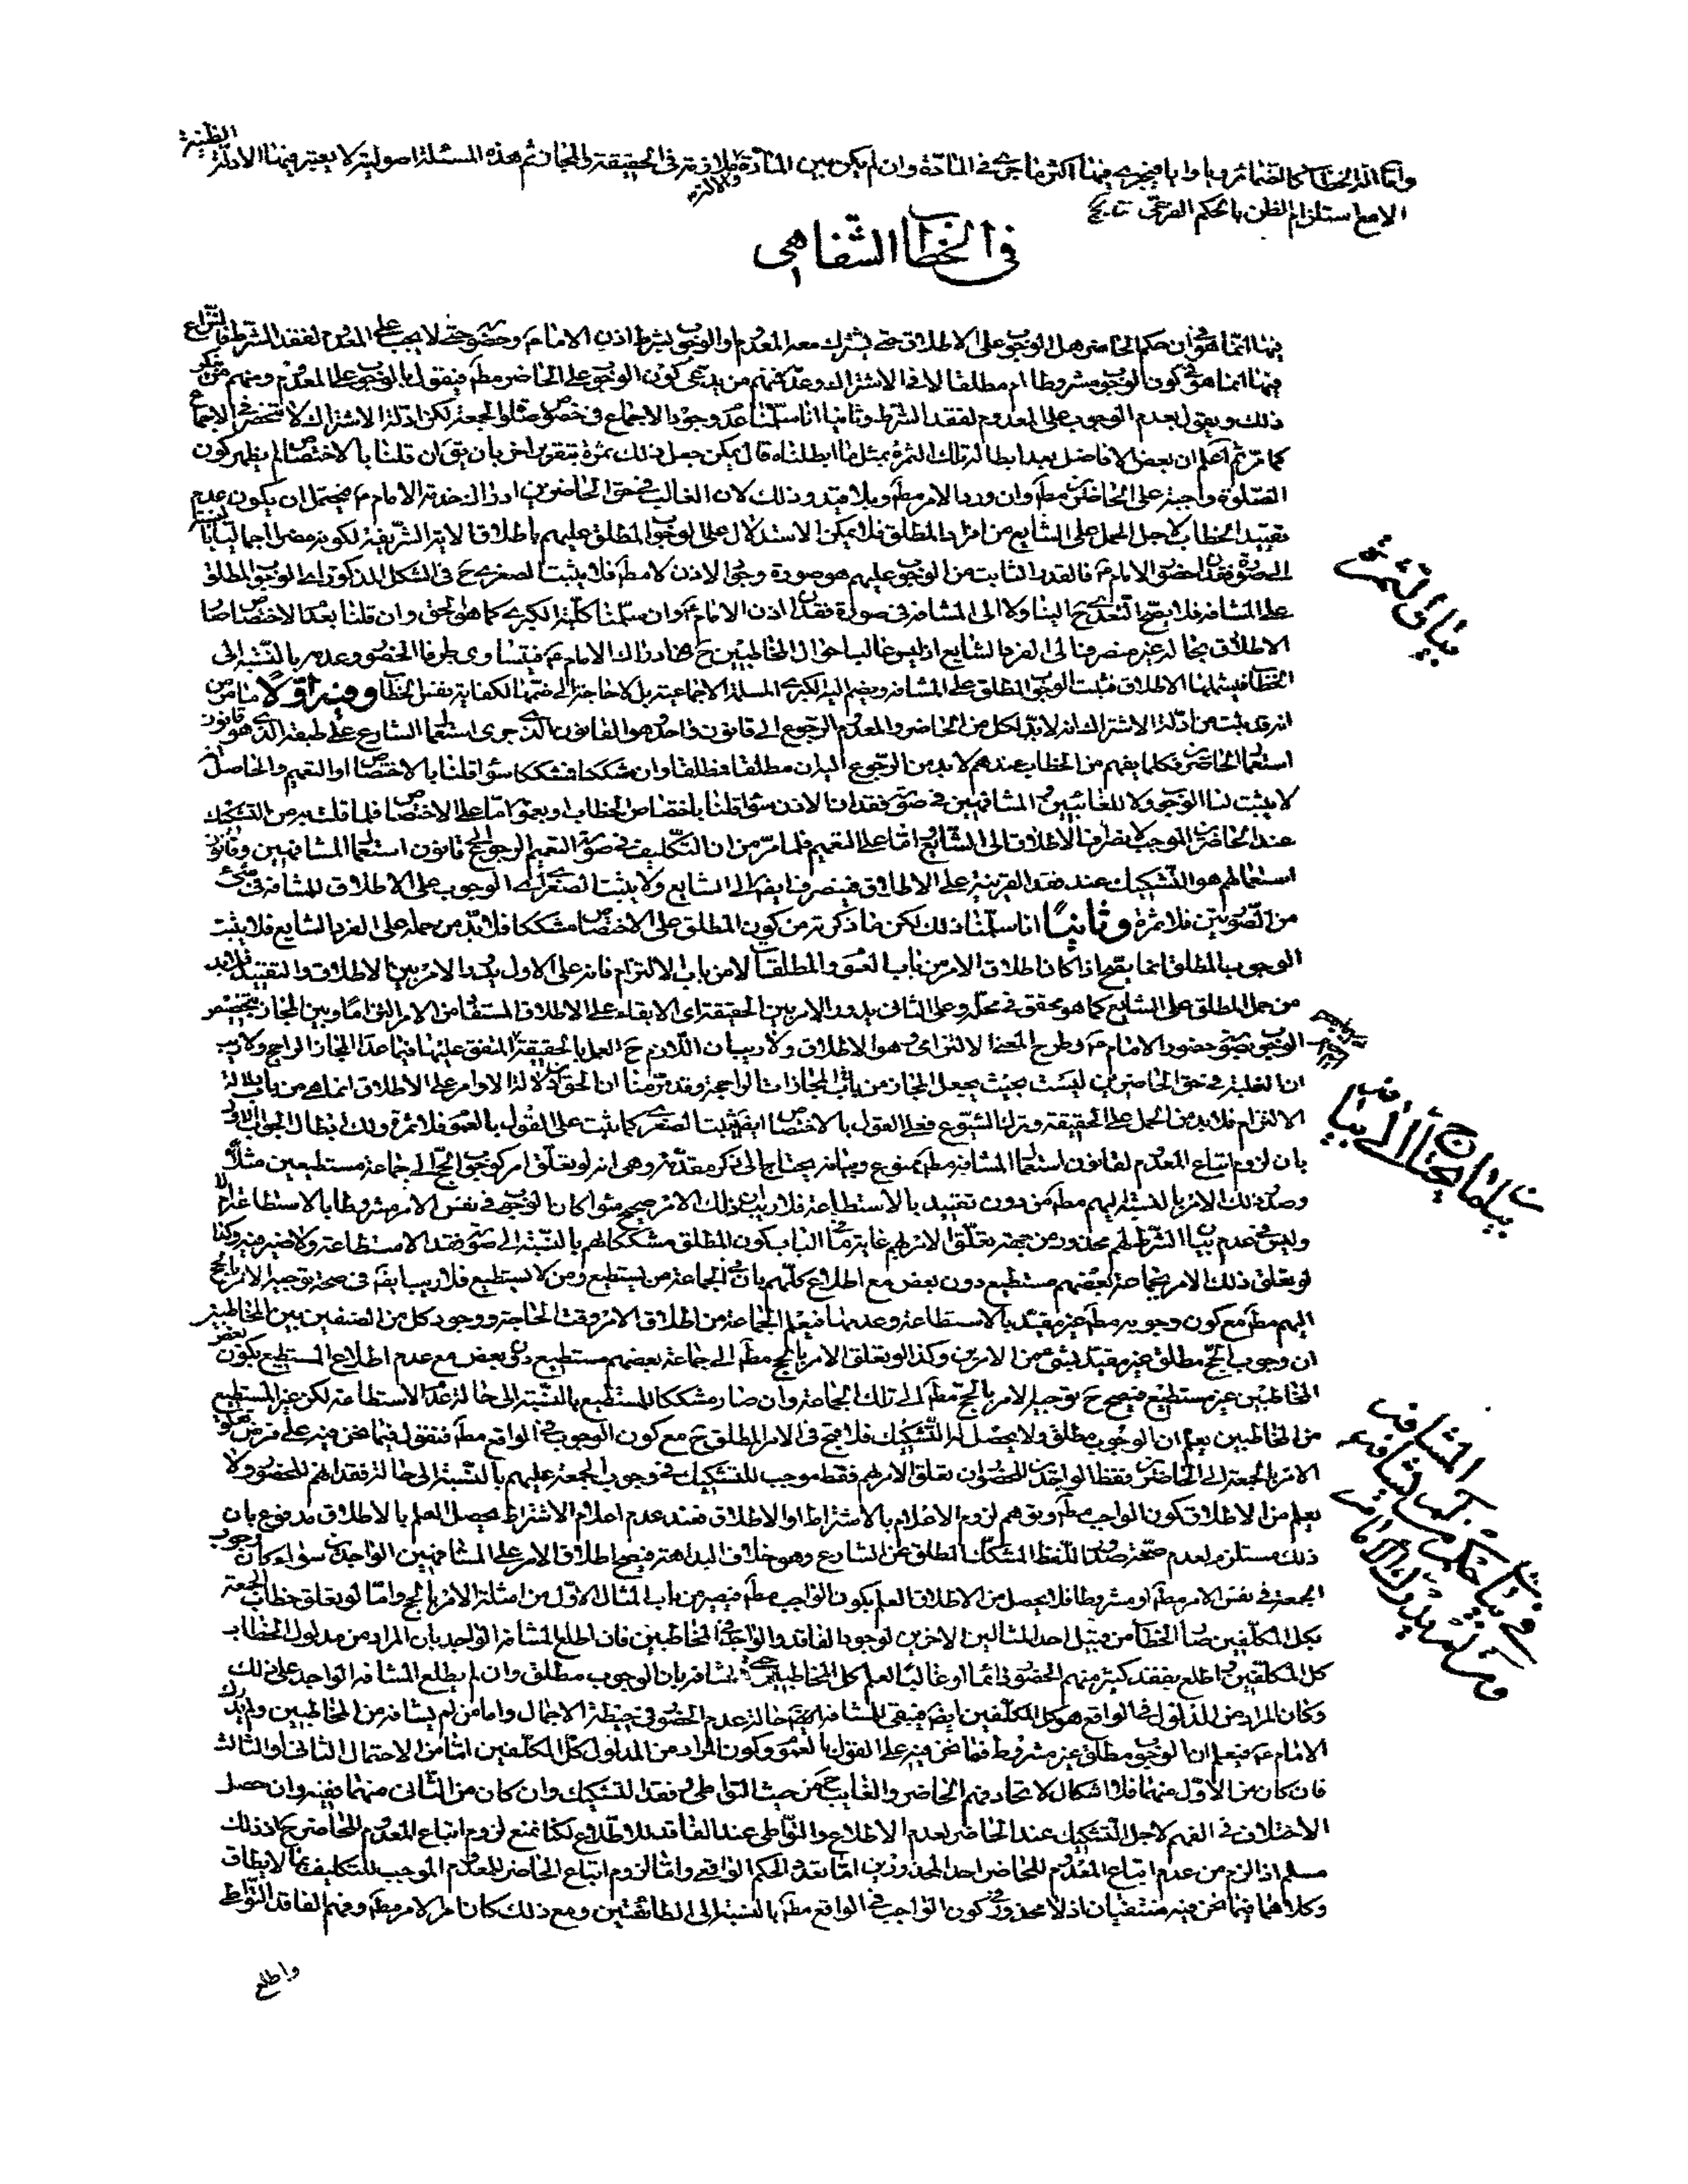 واما آلة الخطاب كالضمائر ويا وايا فيجرى فيها اكثر ما جرى فى المادة وان لم يكن بين المادة والالة ملازمة فى الحقيقة والمجاز ثم هذه المسئلة اصولية لا يعتبر فيها الادلة الظنية
الا مع استلزام الظن بالحكم الفرعى
فى الخطاب الشفاهى
فيها انما هو فى ان حكم الحاضر هل الوجوب على الاطلاق حتى يشترك معه المعدوم او الوجوب بشرط اذن الامام وحضوره حتى لا يجب على المعدوم لفقد الشرط فالنزاع
فيها انما هو فى كون الوجوب مشروطا ام مطلقا لا فى الاشتراك وعدمه فمنهم من يدعى كون الوجوب على الحاضر مطم فيقول بالوجوب على المعدوم ومنهم من ينكر
ذلك ويقول بعدم الوجوب على المعدوم لفقد الشرط وثانيا انا سلمنا عدم وجود الاجماع فى خصوص صلوة الجمعة لكن ادلة الاشتراك لا تنحصر فى الاجماع
كما مر ثم اعلم ان بعض الافاضل بعد ابطال تلك الثمرة بمثل ما ابطلناه قال يمكن جعل ذلك ثمرة بتقرير اخر بان يق ان قلنا بالاختصاص لم يظهر كون
الصلوة واجبة على الحاضرين مطم وان ورد الامر مطم وبلا قيد وذلك لان الغالب فى حق الحاضرين ادراك خدمة الامام ع فيحتمل ان يكون عدم
تقييد الخطاب لاجل الحمل على الشايع من افراد المطلق فلا يمكن الاستدلال على الوجوب المطلق عليهم باطلاق الاية الشريفة لكونه معرضا اجماليا بالنسبة
الى صورة فقدان حضور الامام ع فالقدر الثابت من الوجوب عليهم هو صورة وجود الاذن لا مطم فلا يثبت الصغرى ح فى الشكل المذكور اى الوجوب المطلق
على المشافه فلا يصح التعدى ح الينا ولا الى المشافه فى صورة فقدان اذن الامام ع وان سلمنا كلية الكبرى كما هو الحق وان قلنا بعدم الاختصاص صار
الاطلاق بحاله غير منصرف الى الفرد الشايع اذ ليس غالب احوال المخاطبين ح هو ادراك الامام ع فيتساوى طرفا الحضور وعدمه بالنسبة الى
الخطاب فيشملها الاطلاق فثبت الوجوب المطلق على المشافه ويضم اليه الكبرى المسلمة الاجماعية بل لا حاجة الى ضمها لكفاية نفس الخطاب وفيه اولا ما مر من
انه قد ثبت من ادلة الاشتراك انه لا بد لكل من الحاضر والمعدوم الرجوع الى قانون واحد هو القانون الذى جرى استعمال الشارع على طبقه الذى هو قانون
استعمال الحاضرين فكلما يفهم من الخطاب عندهم لا بد من الرجوع اليه ان مطلقا فمطلقا وان مشككا فمشككا سواء قلنا بالاختصاص او التعميم والحاصل انه
لا يثبت لنا الوجوب ولا للغائبين المشافهين فى صورة فقدان الاذن سواء قلنا باختصاص الخطاب او بعمومه اما على الاختصاص فلما قلت من التشكيك
عند الحاضرين الموجب لانصراف الاطلاق الى الشايع واما على التعميم فلما مر من ان التكليف فى صورة التعميم الرجوع الى قانون استعمال المشافهين وقانون
استعمالهم هو التشكيك عند فقد القرينة على الاطلاق فينصرف ايضا الى الشايع ولا يثبت الصغرى اى الوجوب على الاطلاق للمشافه فى شئ
من الصورتين فلا ثمرة وثانيا انا سلمنا ذلك لكن ما ذكرته من كون المطلق على الاختصاص مشككا فلا بد من حمله على الفرد الشايع فلا يثبت
الوجوب المطلق انما يتم اذا كان اطلاق الامر من باب العموم والمطلق لا من باب الالتزام فانه على الاول يدور الامر بين الاطلاق والتقييد فلا بد
من حمل المطلق على الشايع كما هو محقق فى محله وعلى الثانى يدور الامر بين الحقيقة اى الابقاء على الاطلاق المستفاد من الامر التزاما وبين المجاز بتخصيص
الوجوب بصورة حضور الامام ع وطرح المعنى الالتزامى هو الاطلاق ولا ريب ان اللازم ح العمل بالحقيقة المتفق عليها فيما عدا المجاز الراجح ولا ريب
ان الغلبة فى حق الحاضرين ليست بحيث يجعل المجاز من باب المجازات الراجحة وقد قدمنا ان الحق دلالة الاوامر على الاطلاق انما هى من باب دلالة
الالتزام فلا بد من الحمل على الحقيقة وترك الشيوع فعلى القول بالاختصاص ايضا يثبت الصغرى كما يثبت على القول بالعموم فلا ثمرة ولك ابطال الجواب الاول
بان لزوم اتباع المعدوم لقانون استعمال المشافه مطم ممنوع وبيانه يحتاج الى ذكر مقدمة وهى انه لو تعلق امر كوجوب الحج الى جماعة مستطيعين مثلا
وصدر ذلك الامر بالنسبة اليهم مطم من دون تقييد بالاستطاعة فلا ريب ان ذلك الامر صحيح سواء كان الوجوب فى نفس الامر مشروطا بالاستطاعة ام لا
وليس فى عدم بيان الشرط لهم محذور من جهة تعلق الامر لهم غاية ما فى الباب كون المطلق مشككا لهم بالنسبة الى صورة فقد الاستطاعة ولا ضير فيه وكذا
لو تعلق ذلك الامر بجماعة بعضهم مستطيع دون بعض مع اطلاع كلهم بان فى الجماعة من يستطيع ومن لا يستطيع فلا ريب ايضا فى صحة توجيه الامر بالحج
اليهم مطم مع كون وجوبه مطم غير مقيد بالاستطاعة وعدمها فيعلم الجماعة من اطلاق الامر وقت الحاجة ووجود كل من الصنفين بين المخاطبين
ان وجوب الحج مطلق غير مقيد بشئ من الامرين وكذا لو تعلق الامر بالحج مطم الى جماعة بعضهم مستطيع دون بعض مع عدم اطلاع المستطيع بكون بعض
المخاطبين غير مستطيع فيصح ح توجيه الامر بالحج مطم الى تلك الجماعة وان صار مشككا للمستطيع بالنسبة الى حالة عدم الاستطاعة لكن غير المستطيع
من المخاطبين يعلم ان الوجوب مطلق ولا يحصل له التشكيك فلا قبح فى الامر المطلق ح مع كون الوجوب فى الواقع مطم فنقول فيما نحن فيه على فرض تعلق
الامر بالجمعة الى الحاضرين فقط الواجدين للحضور ان تعلق الامر لهم فقط موجب للتشكيك فى وجوب الجمعة عليهم بالنسبة الى حالة فقدانهم للحضور ولا
يعلم من الاطلاق كون الواجب مطم وتوهم لزوم الاعلام بالاشتراط او الاطلاق فعند عدم اعلام الاشتراط يحصل العلم بالاطلاق مدفوع بان
ذلك مستلزم لعدم صحة صدور اللفظ المشكك المطلق من الشارع وهو خلاف البداهة فيصح اطلاق الامر على المشافهين الواجدين سواء كان وجوب
الجمعة فى نفس الامر مطم او مشروطا فلا يحصل من الاطلاق العلم بكون الواجب مطم فيصير من باب المثال الاول من امثلة الامر بالحج واما لو تعلق خطاب الجمعة
بكل المكلفين صار الخطاب من قبيل احد المثالين الاخرين لوجود الفاقد والواجد فى المخاطبين فان اطلع المشافه الواجد بان المراد من مدلول الخطاب
كل المكلفين واطلع بفقد كثير منهم الحضور دائما او غالبا لعلم كل المخاطبين حتى المشافه بان الوجوب مطلق وان لم يطلع المشافه الواجد على ذلك
وكان المراد من المدلول فى الواقع هو كل المكلفين ايضا فيبقى للمشافه حالة عدم الحضور فى حيطة الاجمال واما من لم يشافه من المخاطبين ولم يدرك
الامام ع فيعلم ان الوجوب مطلق غير مشروط فما نحن فيه على القول بالعموم وكون المراد من المدلول كل المكلفين اما من الاحتمال الثانى او الثالث
فان كان من الاول منهما فلا اشكال لاتحاد فهم الحاضر والغايب ح من حيث التواطى وفقد التشكيك وان كان من الثانى منهما ففيه وان حصل
الاختلاف فى الفهم لاجل التشكيك عند الحاضر لعدم الاطلاع والتواطى عند الفاقد للاطلاع لكنا نمنع لزوم اتباع المعدوم للحاضر ح اذ ذلك
مسلم اذا لزم من عدم اتباع المعدوم للحاضر احد المحذورين اما تعدد الحكم الواقعى واما لزوم اتباع الحاضر للمعدوم الموجب للتكليف بما لا يطاق
وكلاهما فيما نحن فيه منتفيان اذ لا محذور فى كون الواجب فى الواقع مطم بالنسبة الى الطائفتين ومع ذلك كان ظاهر الامر مطم وفهم الفاقد التواطى
واطلع